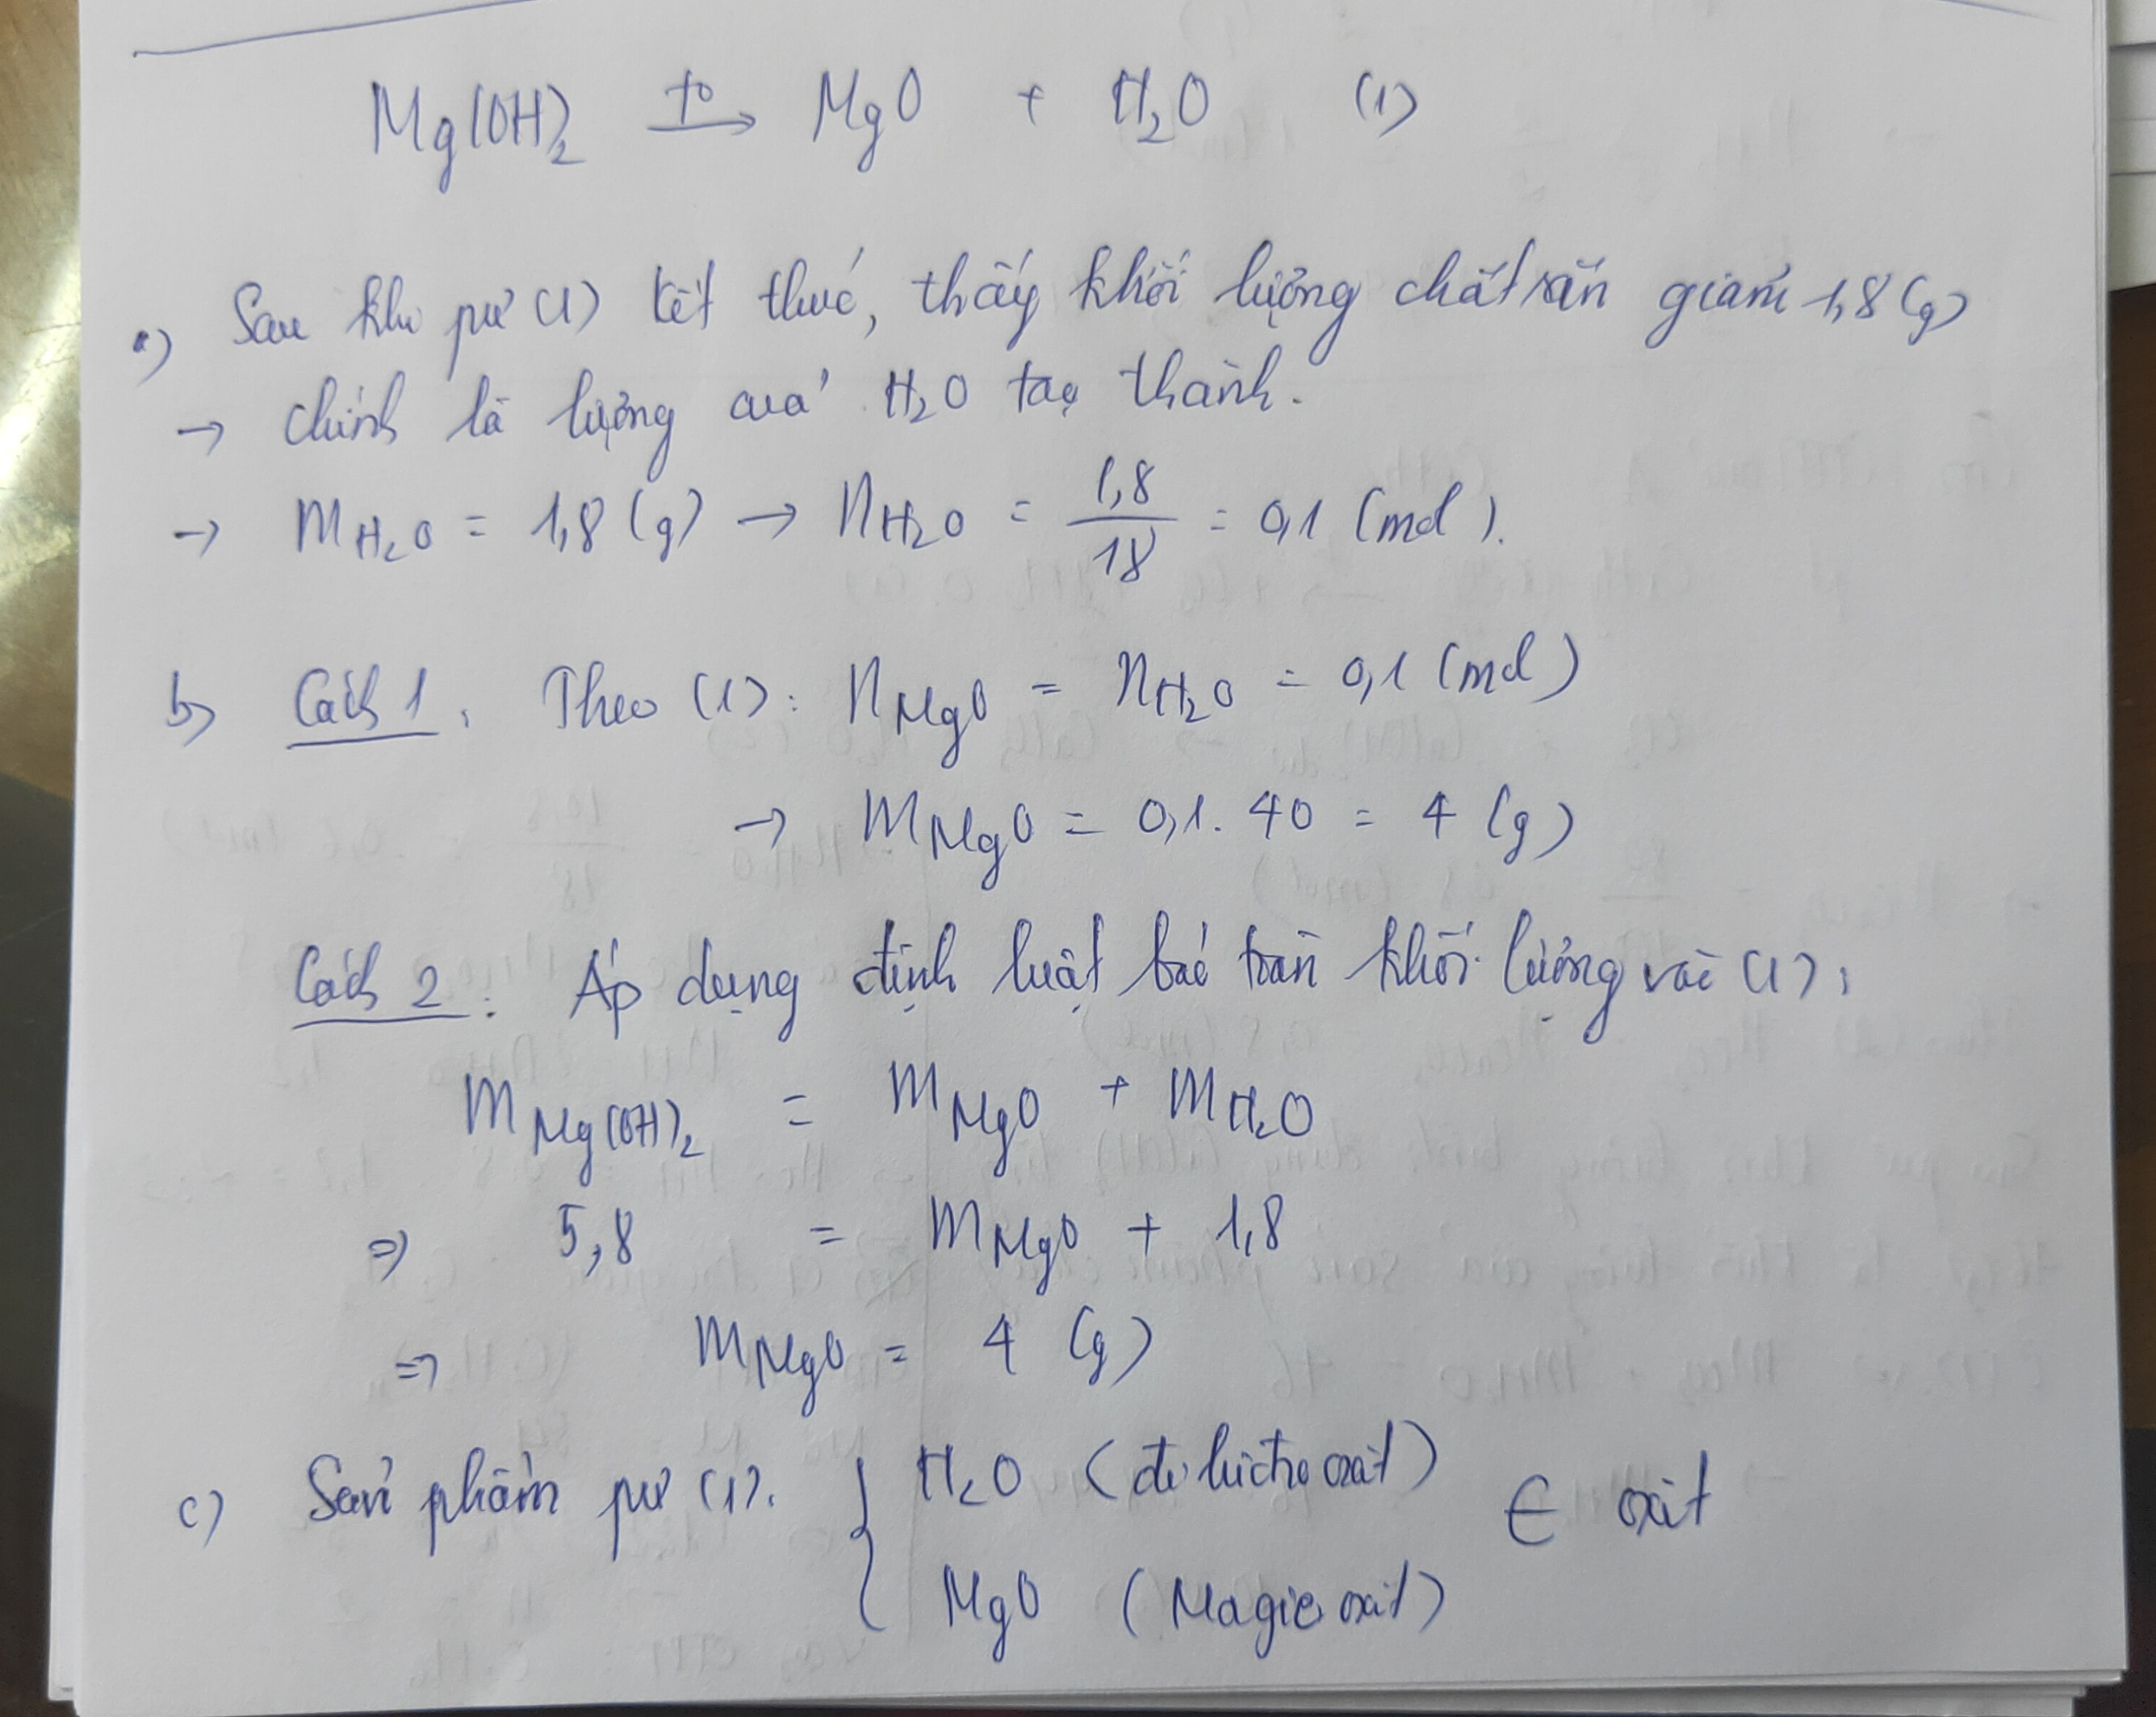 Mg(OH)₂ —t°→ MgO + H₂O (1)
a) Sau khi pư (1) kết thúc, thấy khối lượng chất rắn giảm 1,8 (g)
→ chính là lượng của H₂O tạo thành.
→ mH₂O = 1,8 (g) → nH₂O = 1,8/18 = 0,1 (mol).
b) Cách 1: Theo (1): nMgO = nH₂O = 0,1 (mol)
→ mMgO = 0,1 . 40 = 4 (g)
Cách 2: Áp dụng định luật bảo toàn khối lượng vào (1):
mMg(OH)₂ = mMgO + mH₂O
⇒ 5,8 = mMgO + 1,8
⇒ mMgO = 4 (g)
c) Sản phẩm pư (1): { H₂O (đi hiđro oxit) ∈ oxit
MgO (Magie oxit)